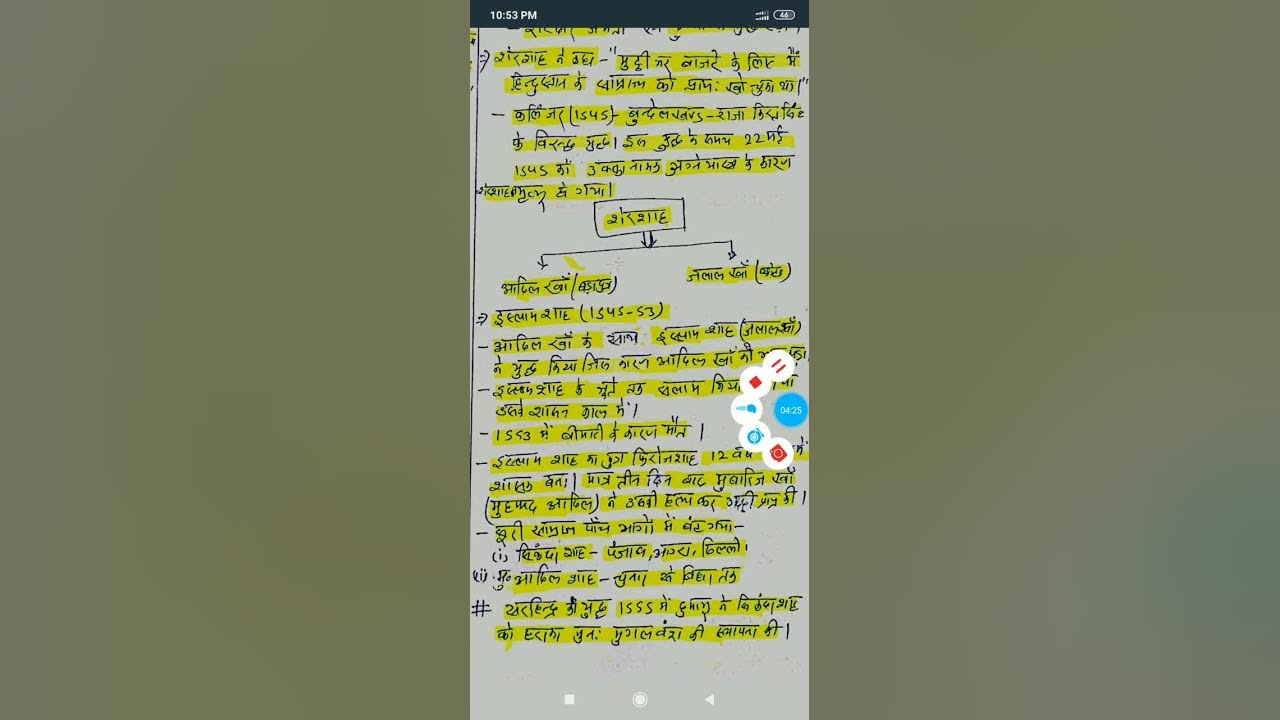 10:53 PM
46
⇒ शेरशाह ने कहा - "मुट्ठी भर बाजरे के लिए मैं
हिन्दुस्तान के साम्राज्य को प्रायः खो चुका था।"
- कलिंजर (1545) - बुन्देलखण्ड - राजा
के विरुद्ध युद्ध। इस युद्ध के समय 22 मई
1545 को उक्का नामक अग्नेयास्त्र के कारण
शेरशाह मृत्यु हो गया।
शेरशाह
आदिल खाँ (बड़ा पुत्र) जलाल खाँ
⇒ इस्लाम शाह (1545-53)
- आदिल खाँ के साथ इस्लाम शाह (जलाल खाँ)
ने युद्ध किया जिस कारण आदिल खाँ को
- इस्लामशाह के जूते तक सलाम किया
उसके शासन काल में।
- 1553 में बीमारी के कारण मौत।
- इस्लाम शाह का पुत्र फिरोजशाह 12 वर्ष में
शासक बना। मात्र तीन दिन बाद मुबारिज खाँ
(मुहम्मद आदिल) ने उसकी हत्या कर गद्दी प्राप्त की।
- सूरी साम्राज्य पाँच भागों में बंट गया-
(i) सिकंदर शाह - पंजाब, आगरा, दिल्ली।
(ii) मु॰ आदिल शाह - चुनार से बिहार तक
# सरहिन्द की युद्ध 1555 में हुमायूं ने सिकंदर शाह
को हराकर पुनः मुगल वंश की स्थापना की।
04:25